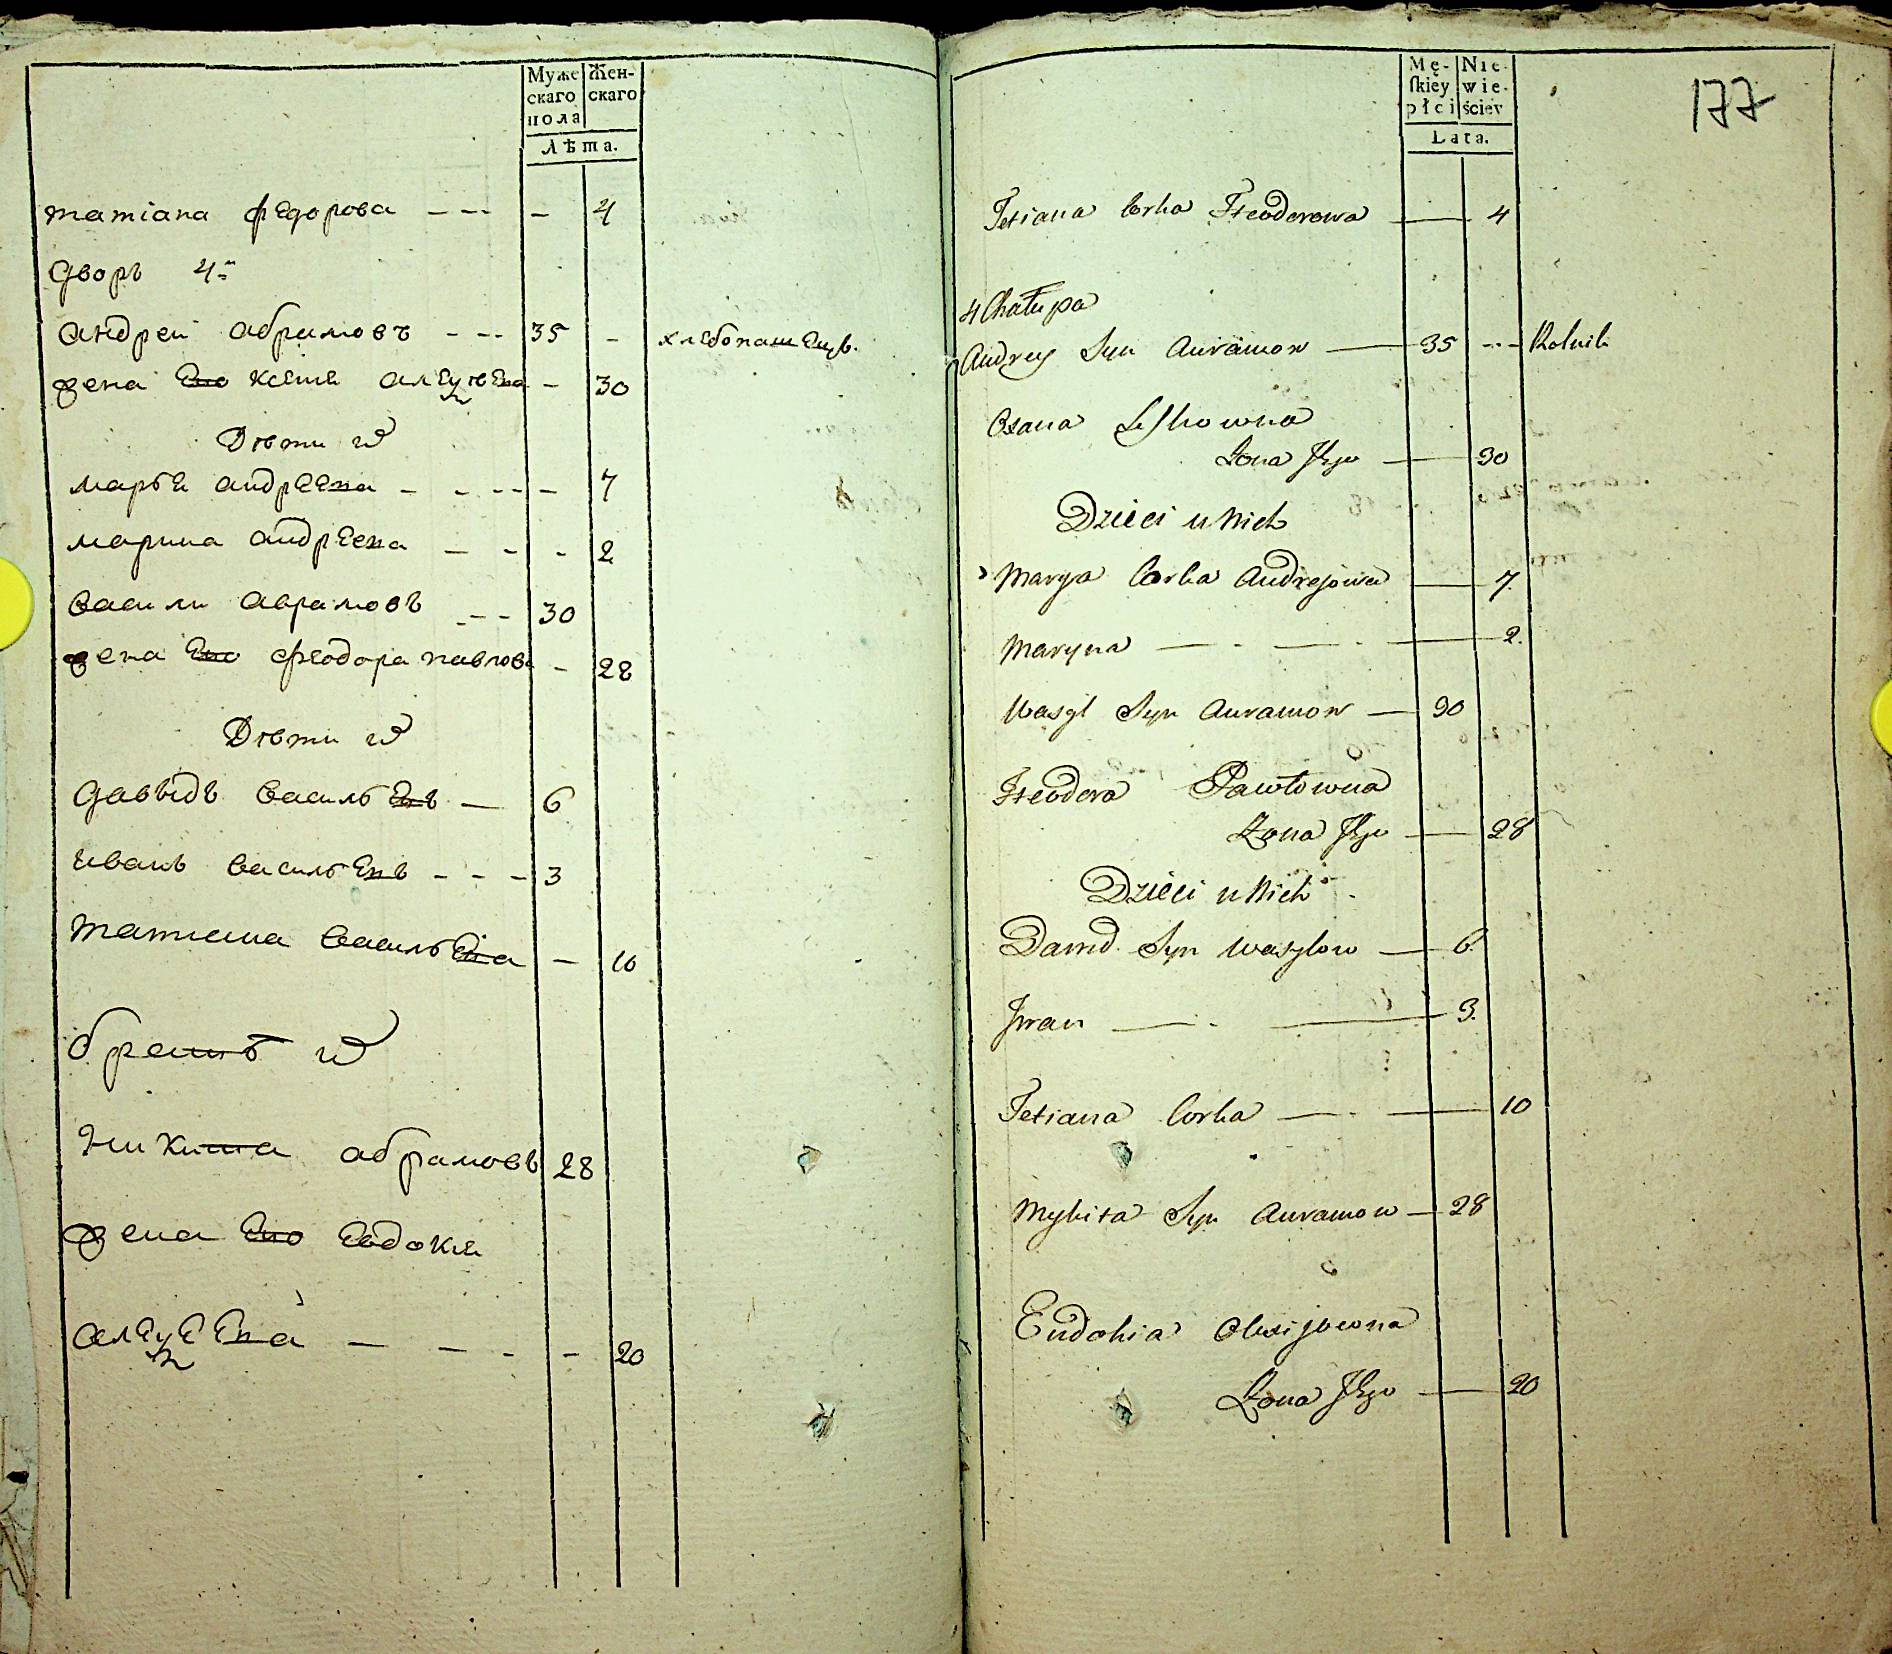 Муже
скаго
пола
Жен-
скаго
Лѣта.
татіана федорова - - - - 4
дворъ 4й
андреи абрамовъ - - - 35 - хлебопашецъ.
жена ево ксеня - 30
Дѣти их
марья андреева - - - - - 7
марина андреева - - - 2
васили аврамовъ - - - 30
жена ево феодора павлова - 28
Дѣти их
давыдъ васильевъ — 6
иванъ васильевъ - - - 3
татиана васильева - 10
братъ их
никита абрамовъ 28
жена ево Евдокия
— - - - 20
Mę-
skiey
płci
Nie-
wie-
ściey
Lata.
177
Tetiana Corka Fteodorowa — 4
4 Chałupa
Andrey Syn Auramow — 35 --- Rolnik
Oxana
Żona Jego — 30
Dzieci u Nich
Marya Corka Andrejowa — 7.
Maryna — - — - — 2.
Wasyl Syn Auramow — 30
Fteodora Pawłowna
Żona Jego — 28
Dzieci u Nich
Dawid Syn Wasylow — 6.
Jwan — - — 3.
Tetiana Corka — - — 10
Mykita Syn Auramow — 28
Eudokia Olexijowna
Żona Jego — 20